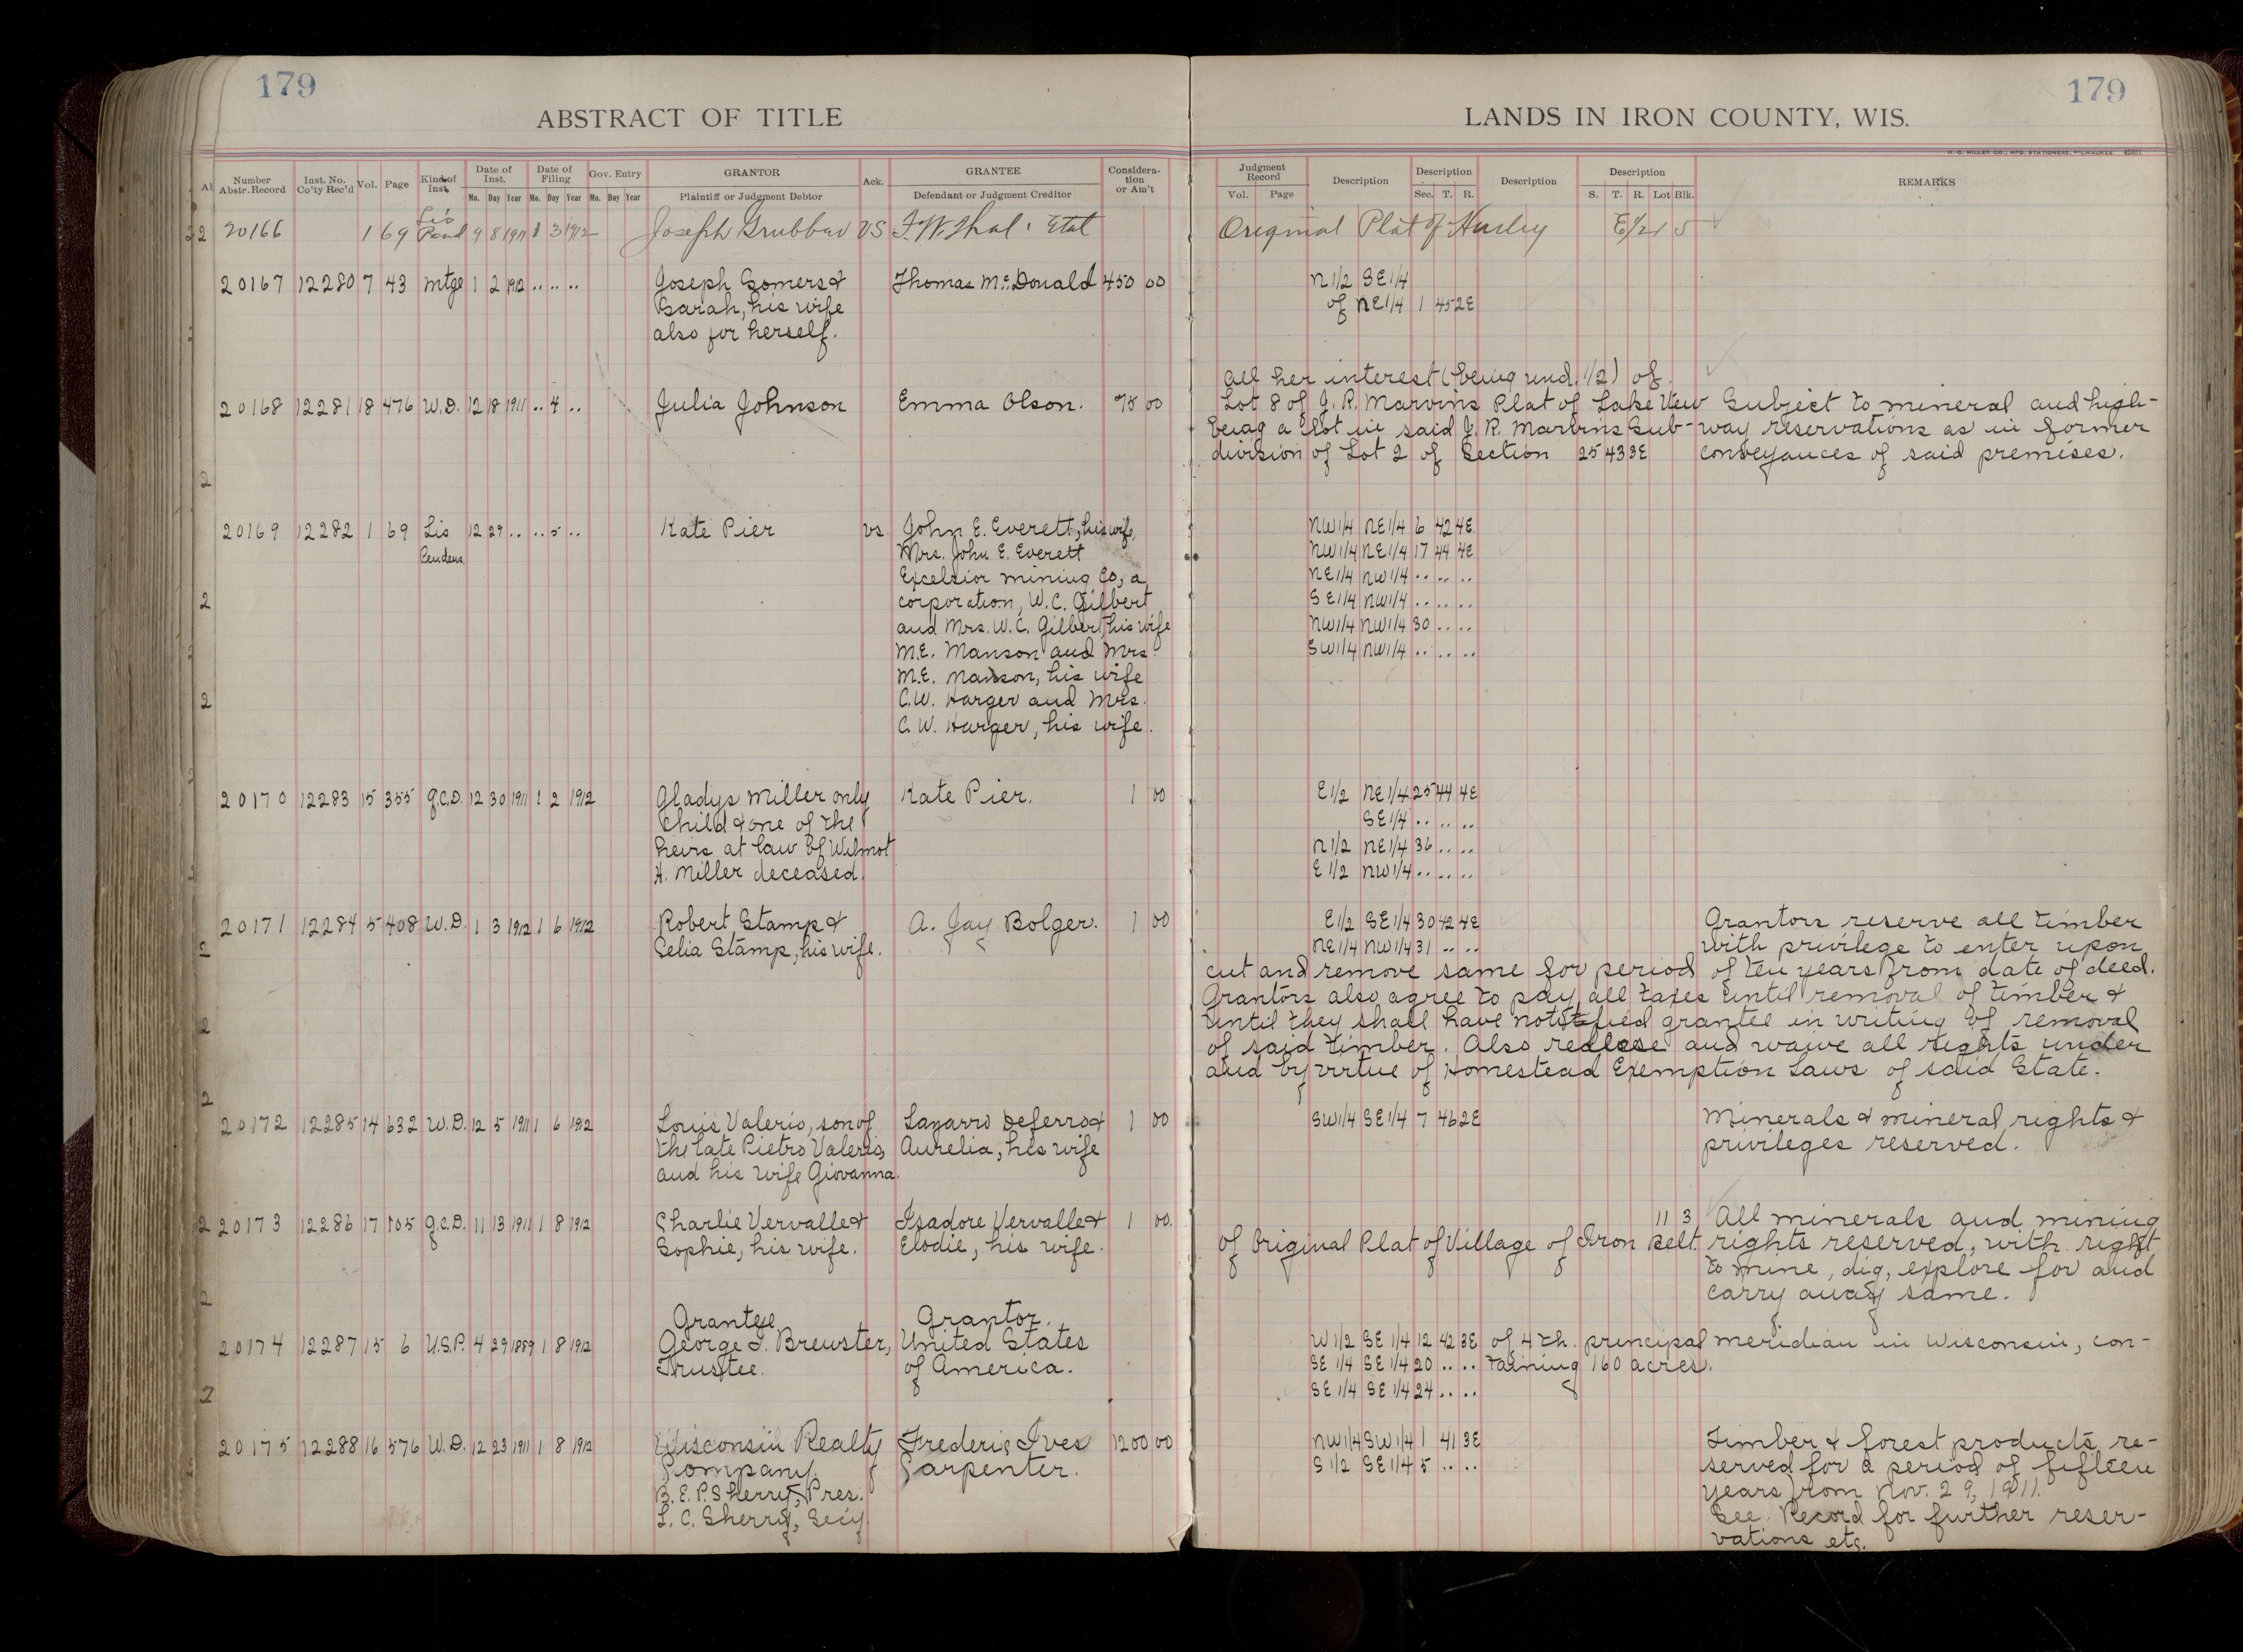 179
179
ABSTRACT OF TITLE
LANDS IN IRON COUNTY, WIS.
H. C. MILLER CO., MFG. STATIONERS, MILWAUKEE
Number Abstr. Record Inst. No. Co'ty Rec'd Vol. Page Kind of Inst. Date of Inst. Mo. Day Year Date of Filing Mo. Day Year Gov. Entry Mo. Day Year GRANTOR Plaintiff or Judgment Debtor Ack. GRANTEE Defendant or Judgment Creditor Consideration or Am't
Judgment Record Vol. Page Description Description Sec. T. R. Description Description S. T. R. Lot Blk. REMARKS
20166 1 69 Lis Pend 9 8 1911 1 3 1912 Joseph Grubbar VS Original Plat of Hurley E1/2 1 5
20167 12280 7 43 Mtge 1 2 1912 .. .. .. Joseph Somers & Thomas McDonald 450 00 N 1/2 SE 1/4
Sarah, his wife of NE 1/4 1 45 2E
also for herself.
All her interest (being und. 1/2) of
20168 12281 18 476 W.D. 12 18 1911 .. 4 .. Julia Johnson Emma Olson. 75 00 Lot 8 of J. R. Marvins Plat of Lake View Subject to mineral and high-
being a lot in said J. R. Marvins Sub- way reservations as in former
division of Lot 2 of Section 25 43 3E conveyances of said premises.
20169 12282 1 69 Lis 12 29 .. .. 5 .. Kate Pier vs. John E. Everett, his wife, NW 1/4 NE 1/4 6 42 4E
Pendens Mrs. John E. Everett NW 1/4 NE 1/4 17 44 4E
Excelsior Mining Co, a NE 1/4 NW 1/4 .. .. ..
corporation, W. C. Gilbert SE 1/4 NW 1/4 .. .. ..
and Mrs. W. C. Gilbert, his wife NW 1/4 NW 1/4 30 .. ..
M.E. Manson and Mrs. SW 1/4 NW 1/4 .. .. ..
M.E. Manson, his wife
C.W. Harger and Mrs.
C. W. Harger, his wife.
20170 12283 15 355 Q.C.D. 12 30 1911 1 2 1912 Gladys Miller only Kate Pier. 1 00 E 1/2 NE 1/4 25 44 4E
child & one of the SE 1/4 .. .. ..
heirs at law of Wilmot N 1/2 NE 1/4 36 .. ..
H. Miller deceased. E 1/2 NW 1/4 .. .. ..
20171 12284 5 408 W.D. 1 3 1912 1 6 1912 Robert Stamp & A. Jay Bolger. 1 00 E 1/2 SE 1/4 30 42 4E Grantors reserve all timber
Selia Stamp, his wife. NE 1/4 NW 1/4 31 .. .. with privilege to enter upon
cut and remove same for period of ten years from date of deed.
Grantors also agree to pay all taxes until removal of timber &
until they shall have notified grantee in writing of removal
of said timber. Also release and waive all rights under
and by virtue of Homestead Exemption Laws of said State.
20172 12285 14 632 W.D. 12 5 1911 1 6 1912 Louis Valerio, son of Lazarro Deferro & 1 00 SW 1/4 SE 1/4 7 46 2E Minerals & mineral rights &
the late Pietro Valerio, Aurelia, his wife privileges reserved.
and his wife Giovanna.
20173 12286 17 105 Q.C.D. 11 13 1911 1 8 1912 Charlie Vervalle & Isadore Vervalle & 1 00. 11 3 All minerals and mining
Sophie, his wife. Elodie, his wife. of Original Plat of Village of Iron Belt. rights reserved, with right
to mine, dig, explore for and
carry away same.
Grantee Grantor.
20174 12287 15 6 U.S.P. 4 29 1889 1 8 1912 George I. Brewster, United States W 1/2 SE 1/4 12 42 3E of 4th. principal meridian in Wisconsin, con-
Trustee. of America. SE 1/4 SE 1/4 20 .. .. taining 160 acres.
SE 1/4 SE 1/4 24 .. ..
20175 12288 16 576 W.D. 12 23 1911 1 8 1912 Wisconsin Realty Frederic Ives 1200 00 NW 1/4 SW 1/4 1 41 3E Timber & forest products re-
Company. Carpenter. S 1/2 SE 1/4 5 .. .. served for a period of fifteen
B. E. P. Sherry, Pres. years from Nov. 29, 1911.
L. C. Sherry, Secy. See Record for further reser-
vations etc.